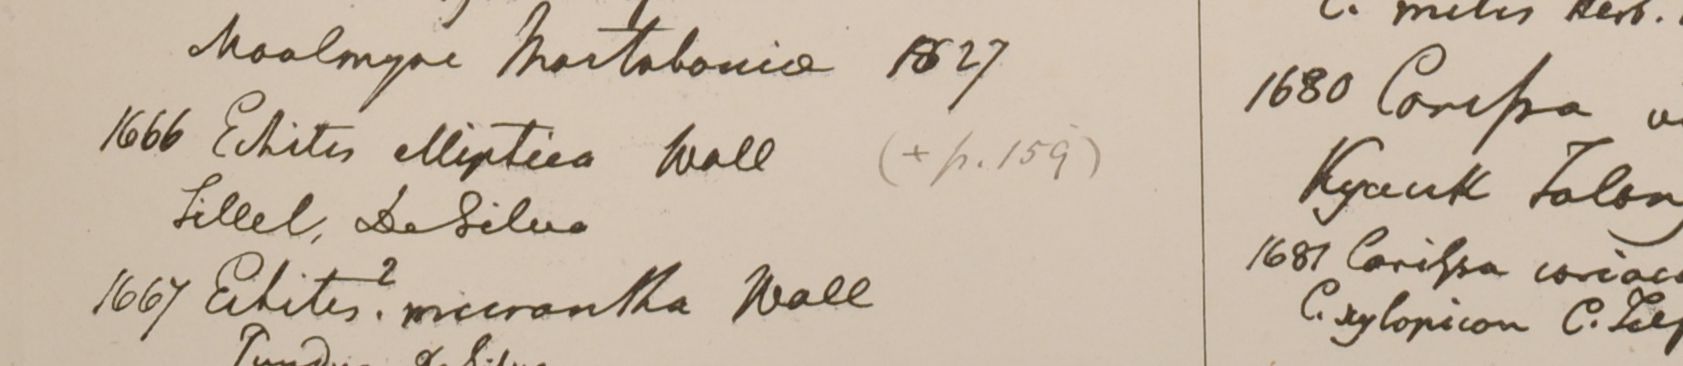 Moalmyne Martabania 1827
1666 Echites elliptica Wall (+ p. 159)
Sillet, De Silva
1667 Echites? micrantha Wall
De Silva
C. mitis Herb.
1680 Carissa
Kyauk Talon
1681 Carissa coriacea
C. xylopicon